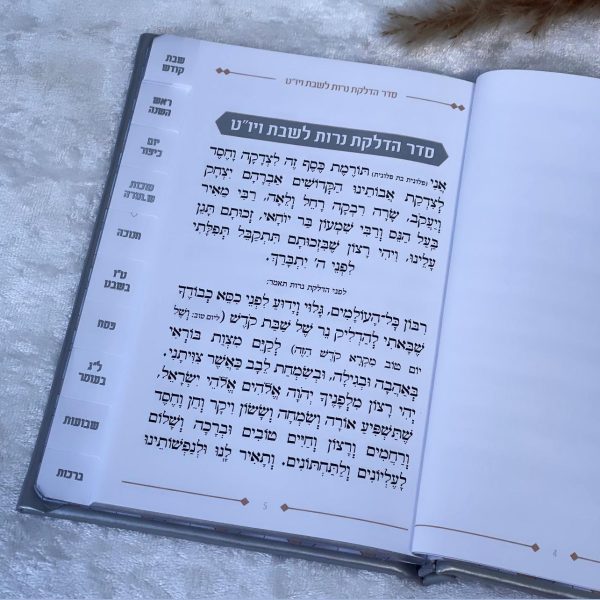 סדר הדלקת נרות לשבת ויו"ט
סדר הדלקת נרות לשבת ויו"ט
אֲנִי (פלונית בת פלונית) תּוֹרֶמֶת כֶּסֶף זֶה לִצְדָקָה וָחֶסֶד
לְצִדְקַת אֲבוֹתֵינוּ הַקְּדוֹשִׁים אַבְרָהָם יִצְחָק
וְיַעֲקֹב, שָׂרָה רִבְקָה רָחֵל וְלֵאָה, רַבִּי מֵאִיר
בַּעַל הַנֵּס וְרַבִּי שִׁמְעוֹן בַּר יוֹחָאי, זְכוּתָם תָּגֵן
עָלֵינוּ, וִיהִי רָצוֹן שֶׁבִּזְכוּתָם תִּתְקַבֵּל תְּפִלָּתִי
לִפְנֵי ה' יִתְבָּרַךְ.
לפני הדלקת נרות תאמר:
רִבּוֹן כָּל־הָעוֹלָמִים, גָּלוּי וְיָדוּעַ לִפְנֵי כִסֵּא כְבוֹדֶךָ
שֶׁבָּאתִי לְהַדְלִיק נֵר שֶׁל שַׁבַּת קֹדֶשׁ (ליום טוב: וְשֶׁל
יוֹם טוֹב מִקְרָא קֹדֶשׁ הַזֶּה) לְקַיֵּם מִצְוַת בּוֹרְאִי
בְּאַהֲבָה וּבְגִילָה, וּבְשִׂמְחַת לֵבָב כַּאֲשֶׁר צִוִּיתַנִי.
יְהִי רָצוֹן מִלְּפָנֶיךָ יְהֹוָה אֱלֹהִים אֱלֹהֵי יִשְׂרָאֵל,
שֶׁתַּשְׁפִּיעַ אוֹרָה וְשִׂמְחָה וְשָׂשׂוֹן וִיקָר וְחֵן וָחֶסֶד
וְרַחֲמִים וְרָצוֹן וְחַיִּים טוֹבִים וּבְרָכָה וְשָׁלוֹם
לָעֶלְיוֹנִים וְלַתַּחְתּוֹנִים. וְתָאִיר לָנוּ וּלְנַפְשׁוֹתֵינוּ
5
4
שבת
קודש
ראש
השנה
יום
כיפור
סוכות
חנוכה
ט"ו
בשבט
פסח
ל"ג
בעומר
שבועות
ברכות